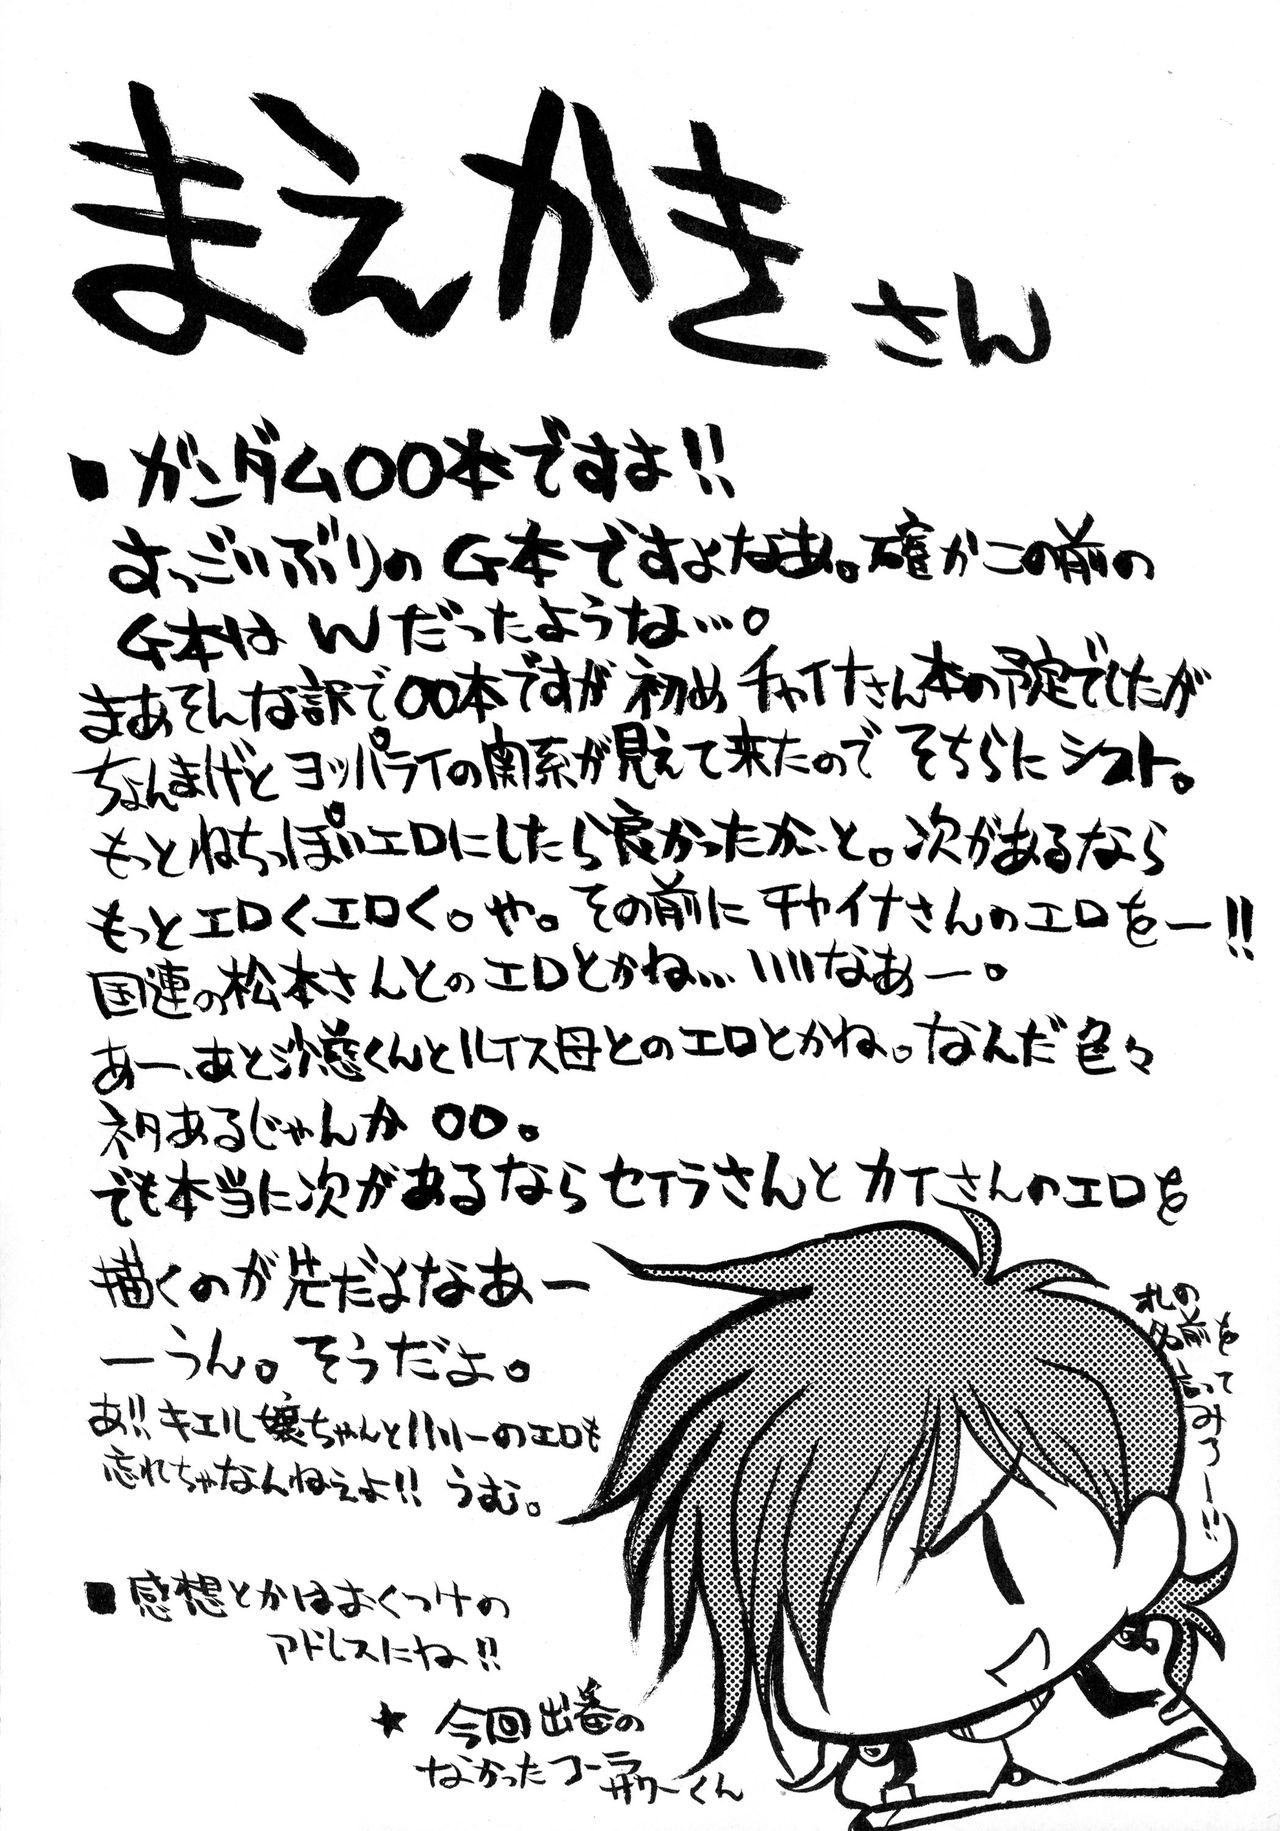 まえかきさん
■ガンダム００本ですよ!!
すっごいぶりのG本ですよなあ。確かこの前の
G本はWだったような…。
まあそんな訳で００本ですが初めチャイナさん本の予定でしたが
ちょんまげとヨッパライの関系が見えて来たのでそちらにシフト。
もっとねちっぽいエロにしたら良かったか、と。次があるなら
もっとエロくエロく。や。その前にチャイナさんのエロをー!!
国連の松本さんとのエロとかね…いいなあー。
あー、あと沙慈くんとルイス母とのエロとかね。なんだ色々
ネタあるじゃんか００。
でも本当に次があるならセイラさんとカイさんのエロを
描くのが先だよなあー
ーうん。そうだよ。
あ!!キエル嬢ちゃんとハリーのエロも
忘れちゃなんねえよ!!うむ。
札の
名前を
言って
みろー!!
■感想とかはおくつけの
アドレスにね!!
★今回出番の
なかったコーラサワーくん